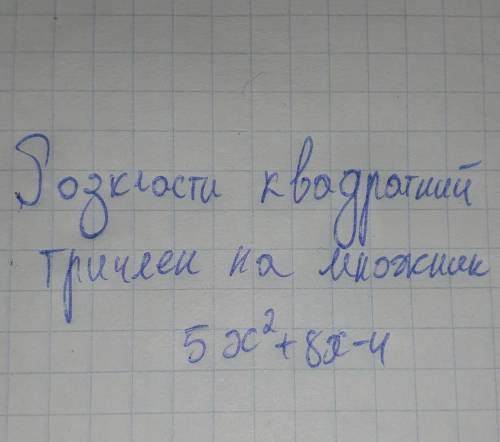 Розкласти квадратний
тричлен на множник
5x²+8x-4